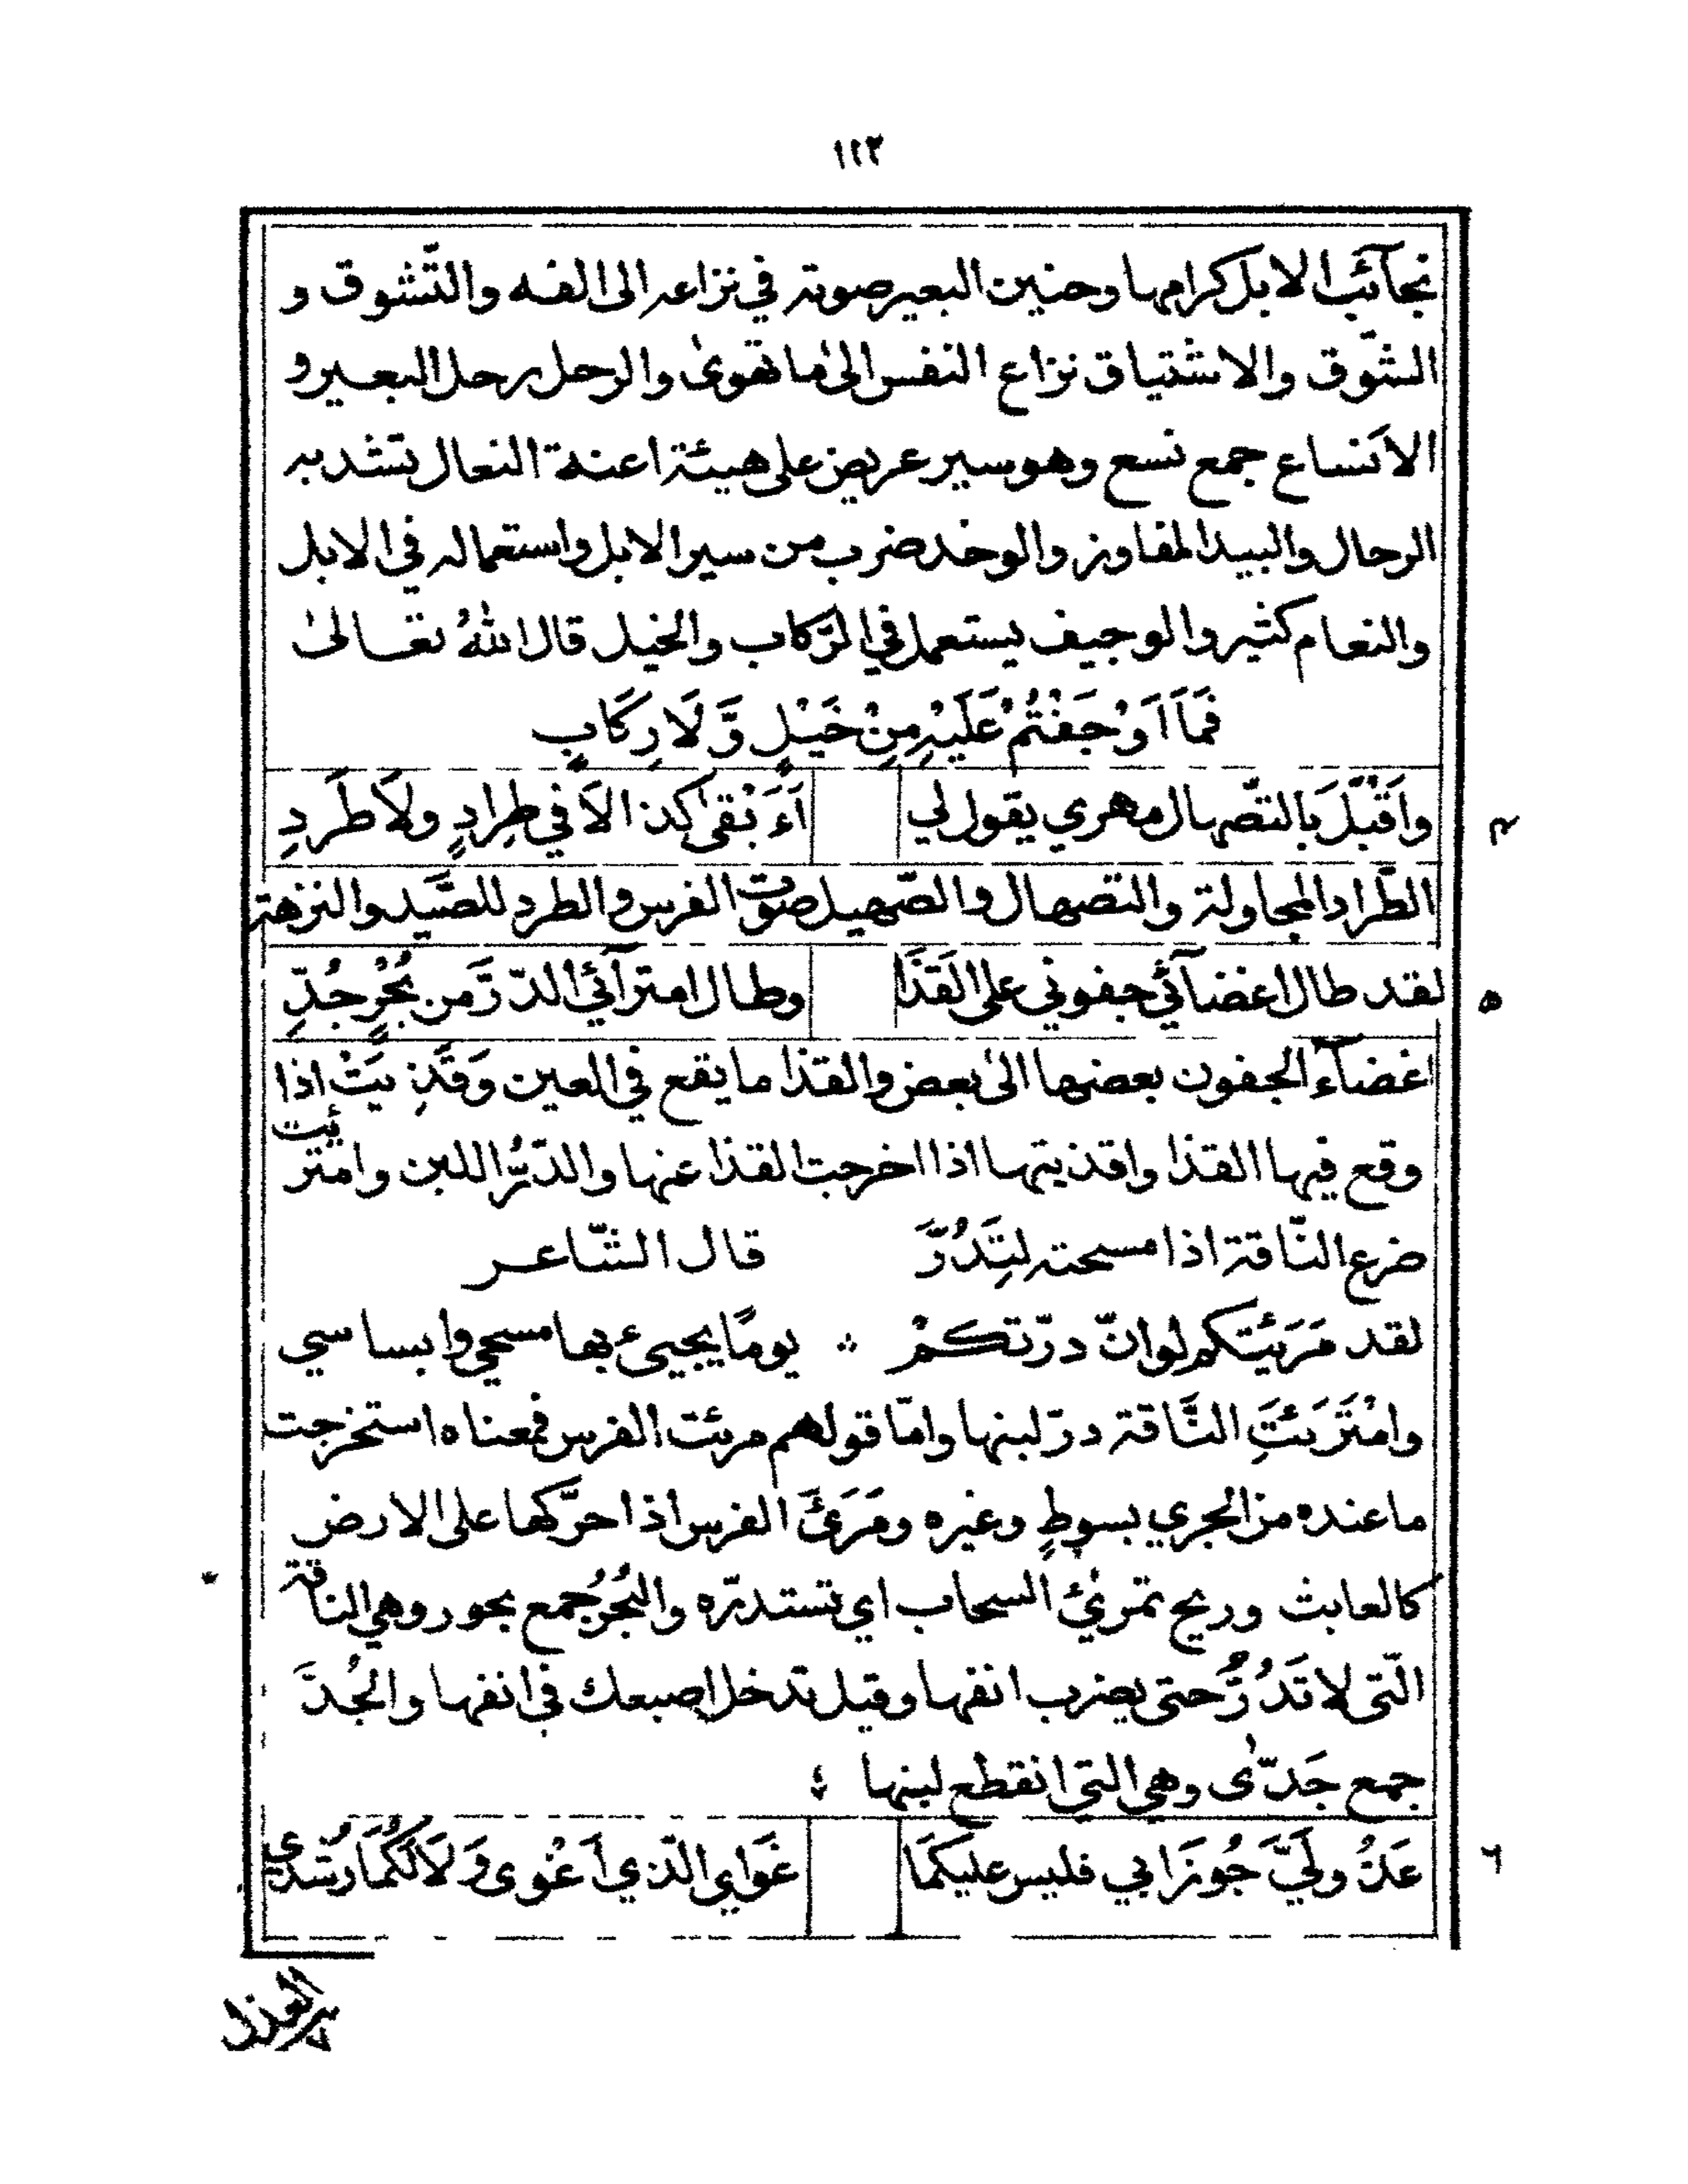 ١١٣
نجآئب الابل كرامها وحنين البعير صوته في نزاعه الى الفه والتّشوق و
الشّوق والاشتياق نزاع النفس الىٰ ما تهوىٰ والرحل رحل البعير و
الانساع جمع نسع وهو سير عريض على هيئة اعنة النعال تشد به
الرحال والبيد المفاوز والوخد ضرب من سير الابل واستعماله في الابل
والنعام كثير والوجيف يستعمل في الرّكاب والخيل قال اللهُ تعالىٰ
فَمَآ اَوْجَفْتُمْ عَلَيْهِ مِنْ خَيْلٍ وَّلَا رِكَابٍ
٤ واَقْبَلَ بالتّصهال مهري يقول لي ءَاَبْقىٰ كذا الاَ في طِرادٍ ولاَ طَردِ
الطّراد المجاولة والتصهال والصّهيل صوت الفرس والطرد للصَّيد والنزهة
٥ لقد طال اغضآئي جفوني على القَذَا وطال امترآئي الدّرَّ من بُجُرٍ جُدِّ
اغضآء الجفون بعضها الىٰ بعض والقذا ما يقع في العين وَقَذِيَتْ اذا
وقع فيها القذا واقذيتها اذا اخرجت القذا عنها والدّرُّ اللبن وامتريت
ضرع النّاقة اذا مسحته لِتَدُرَّ قال الشّاعر
لقد مَرَيْتكم لو انّ درّتكمْ ؞ يومًا يجيىء بها مسحي وابساسي
وامْتَرَيَتِ النَّاقة درّ لبنها وامّا قولهم مريت الفرس فمعناه استخرجت
ما عنده من الجري بسوطٍ وغيره ومَرَىَٔ الفرس اذا حرّكها على الارض
كالعابث وريح تمرىٔ السحاب اي تستدرّه والبُجُرُ جمع بجور وهي الناقة
الّتى لا تَدُرُّ حتى يضرب انفها وقيل تدخل اصبعك في انفها والجُدّ
جمع جَدّٰى وهي التي انقطع لبنها ؛
٦ عَذُولَيَّ جُوزَا بي فليس عليكمَا غَوَاىِ الّذي اَغْوى وَلاَ لَكُمَا رُشدي
العذل